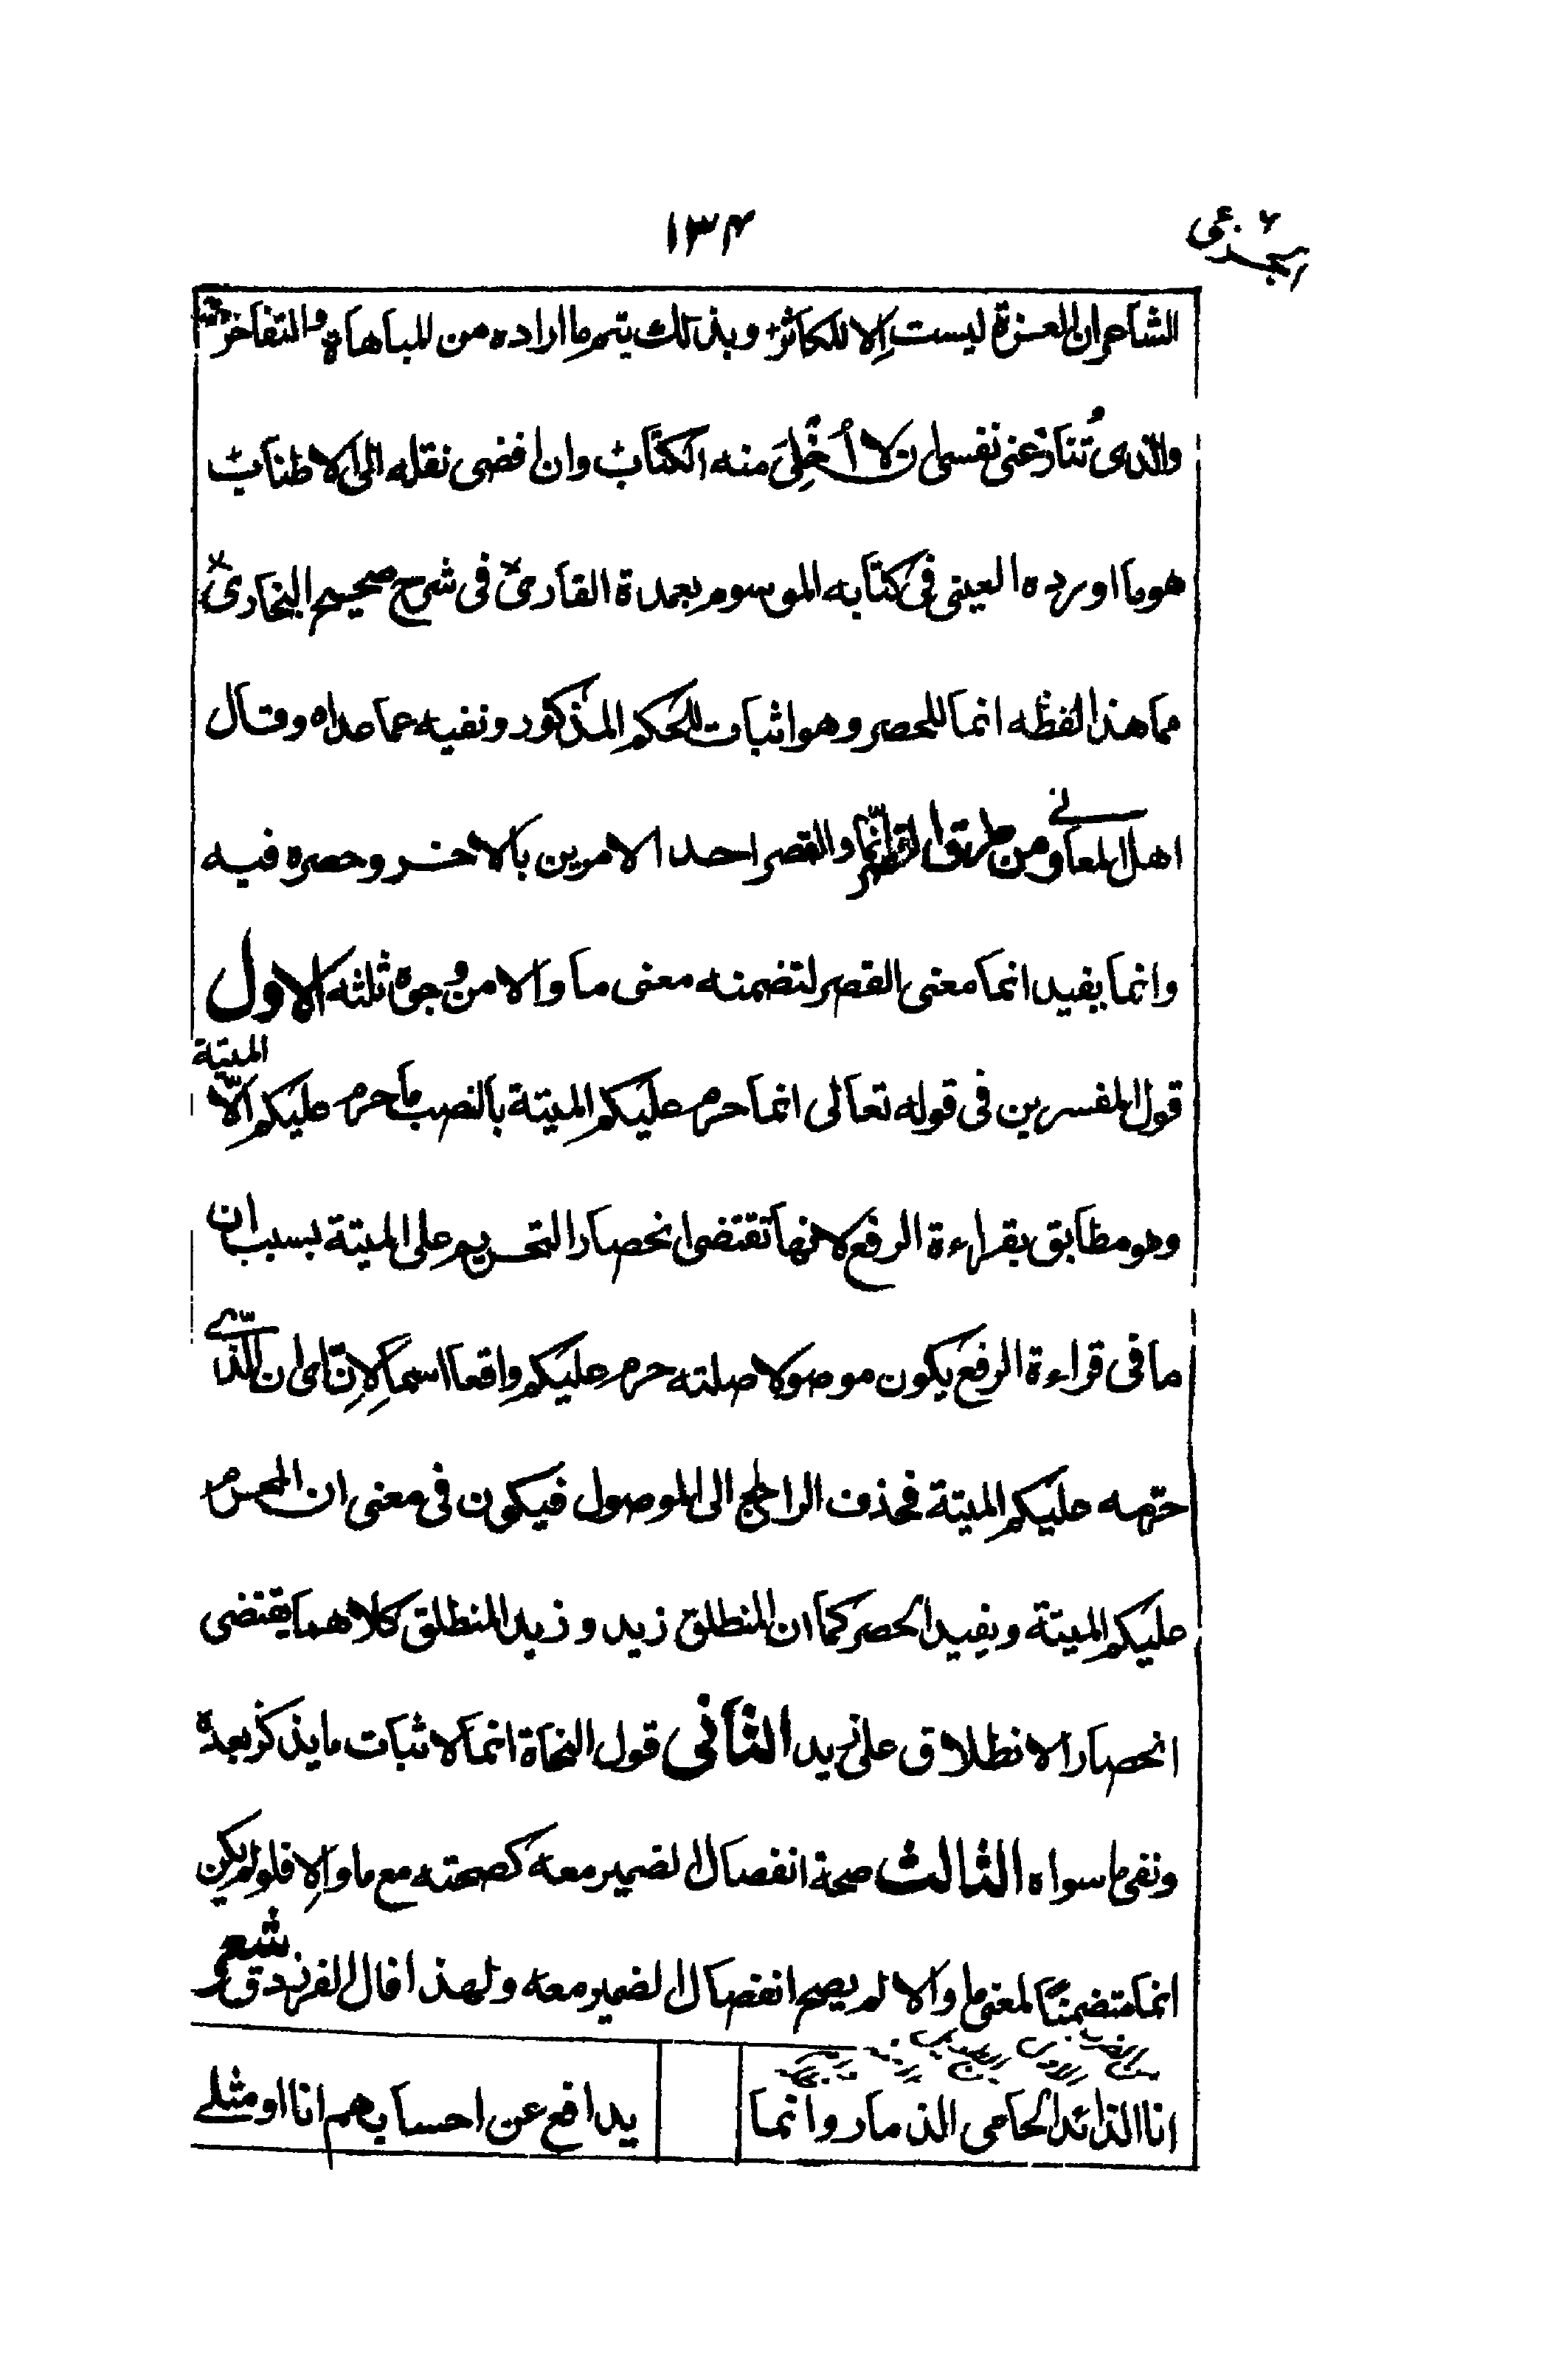 ۱۳۴
الشاعر ان العزة ليست إلا للكاثر وبذالك يتم ما اراده من المباهاة والتفاخر
والذى تُنازعنى نفسى ان لا أُخْلِىَ منه الكتاب وان افضى نقله الى الاطناب
هو ما اورده العينى فى كتابه الموسوم بعمدة القارى فى شرح صحيح البخارى
مما هذا لفظه انما للحصر وهو اثبات للحكم المذكور ونفيه عما عداه وقال
اهل المعانى ومن طرق القصر انّما والقصر احد الامرين بالاخر وحصره فيه
وانما يفيد انما معنى القصر لتضمنه معنى ما والا من وُجوه ثلثه الاول
قول المفسرين فى قوله تعالى انما حرم عليكم الميتة بالنصب ما حرم عليكم الّا الميتة
وهو مطابق بقراءة الرفع لانها تقتضى انحصار التحريم على الميتة بسبب ان
ما فى قراءة الرفع يكون موصولا صلته حرم عليكم واقعا اسمًا لِاِنّ اى ان الّذى
حرّمه عليكم الميتة فحذف الراجع الى الموصول فيكون فى معنى ان المحرم
عليكم الميتة ويفيد الحصر كما ان المنطلق زيد و زيد المنطلق كلاهما يقتضى
انحصار الانطلاق على زيد الثانى قول النحاة انما لاثبات ما يذكر بعده
ونفى ما سواه الثالث صحة انفصال الضمير معه كصحته مع ما والا فلو لم يكن
انما متضمنًا لمعنى ما والا لم يصح انفصال الضمير معه ولهذا قال الفرزدق شعر
انا الذائد الحامى الذمار وانما يدافع عن احسابهم انا او مثلى